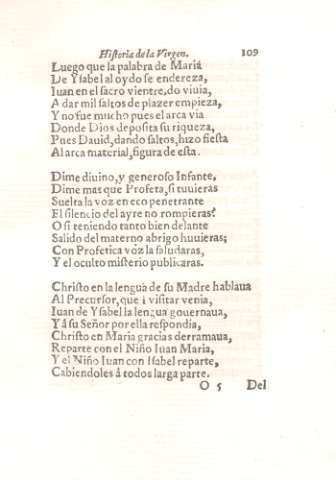 Historia de la Virgen. 109
Luego que la palabra de Maria
De Ysabel al oydo se endereza,
Iuan en el sacro vientre, do viuia,
A dar mil saltos de plazer empieza,
Y no fue mucho pues el arca via
Donde Dios deposita su riqueza,
Pues Dauid, dando saltos, hizo fiesta
Al arca material, figura de esta.
Dime diuino, y generoso Infante,
Dime mas que Profeta, si tuuieras
Suelta la voz en eco penetrante
El silencio del ayre no rompieras?
O si teniendo tanto bien delante
Salido del materno abrigo huuieras;
Con Profetica voz la saludaras,
Y el oculto misterio publicaras.
Christo en la lengua de su Madre hablaua
Al Precursor, que à visitar venia,
Iuan de Ysabel la lengua gouernaua,
Y â su Señor por ella respondia,
Christo en Maria gracias derramaua,
Reparte con el Niño Iuan Maria,
Y el Niño Iuan con Isabel reparte,
Cabiendoles á todos larga parte.
O 5 Del